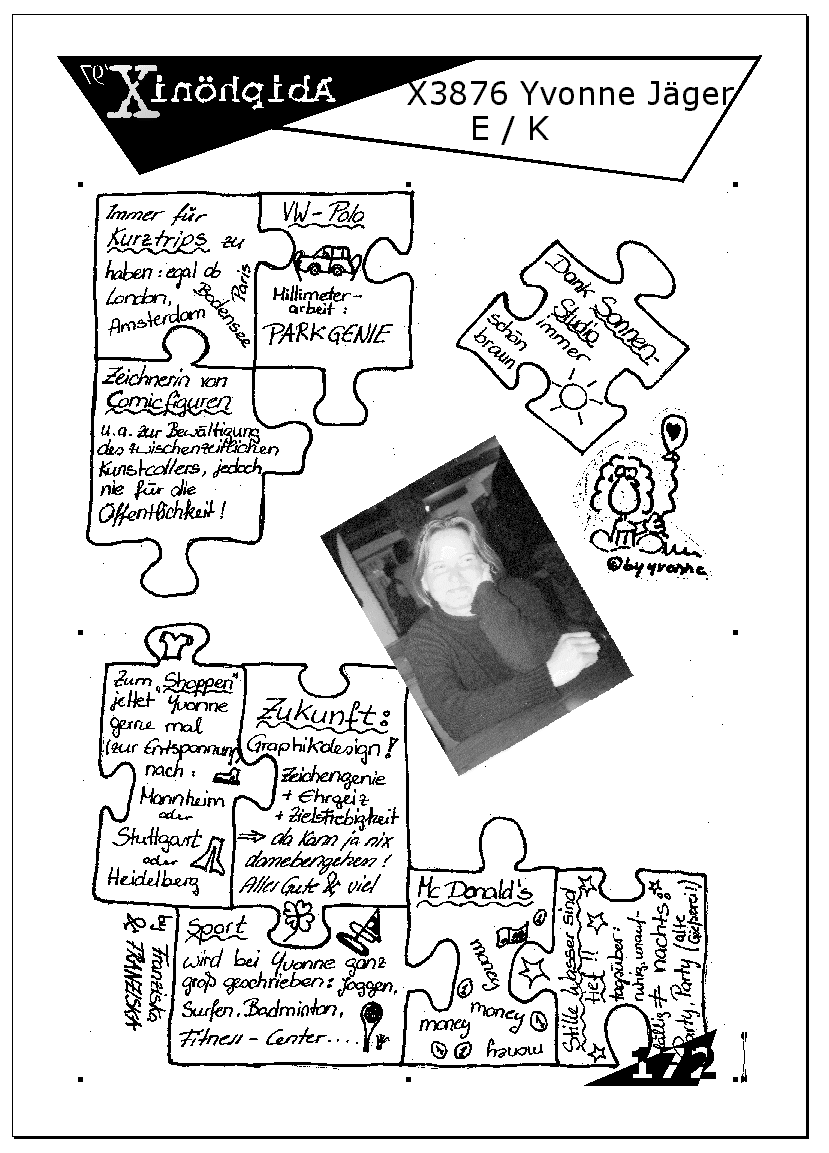 Abiphönix '97
X3876 Yvonne Jäger
E / K
Immer für
Kurztrips zu
haben: egal ob
London,
Amsterdam
Bodensee
Paris
VW-Polo
Millimeter-
arbeit:
PARKGENIE
Dank Sonnen-
Studio
immer
schön
braun
Zeichnerin von
Comicfiguren
u.a. zur Bewältigung
des zwischenzeitlichen
Kunstcollers, jedoch
nie für die
Öffentlichkeit!
©by yvonne
Zum "Shoppen"
jettet Yvonne
gerne mal
(zur Entspannung)
nach:
Mannheim
oder
Stuttgart
oder
Heidelberg
Zukunft:
Graphikdesign!
Zeichengenie
+ Ehrgeiz
+ Zielstrebigkeit
⇒ da kann ja nix
danebengehen!
Alles Gute & viel
by Franziska
& FRANZISKA
Sport
wird bei Yvonne ganz
groß geschrieben: Joggen,
Surfen, Badminton,
Fitness-Center....
Mc Donald's
money
money
money
money
Stille Wasser sind
tief!!
tagsüber:
ruhig, unauf-
fällig ≠ nachts:
Party, Party (alte
172